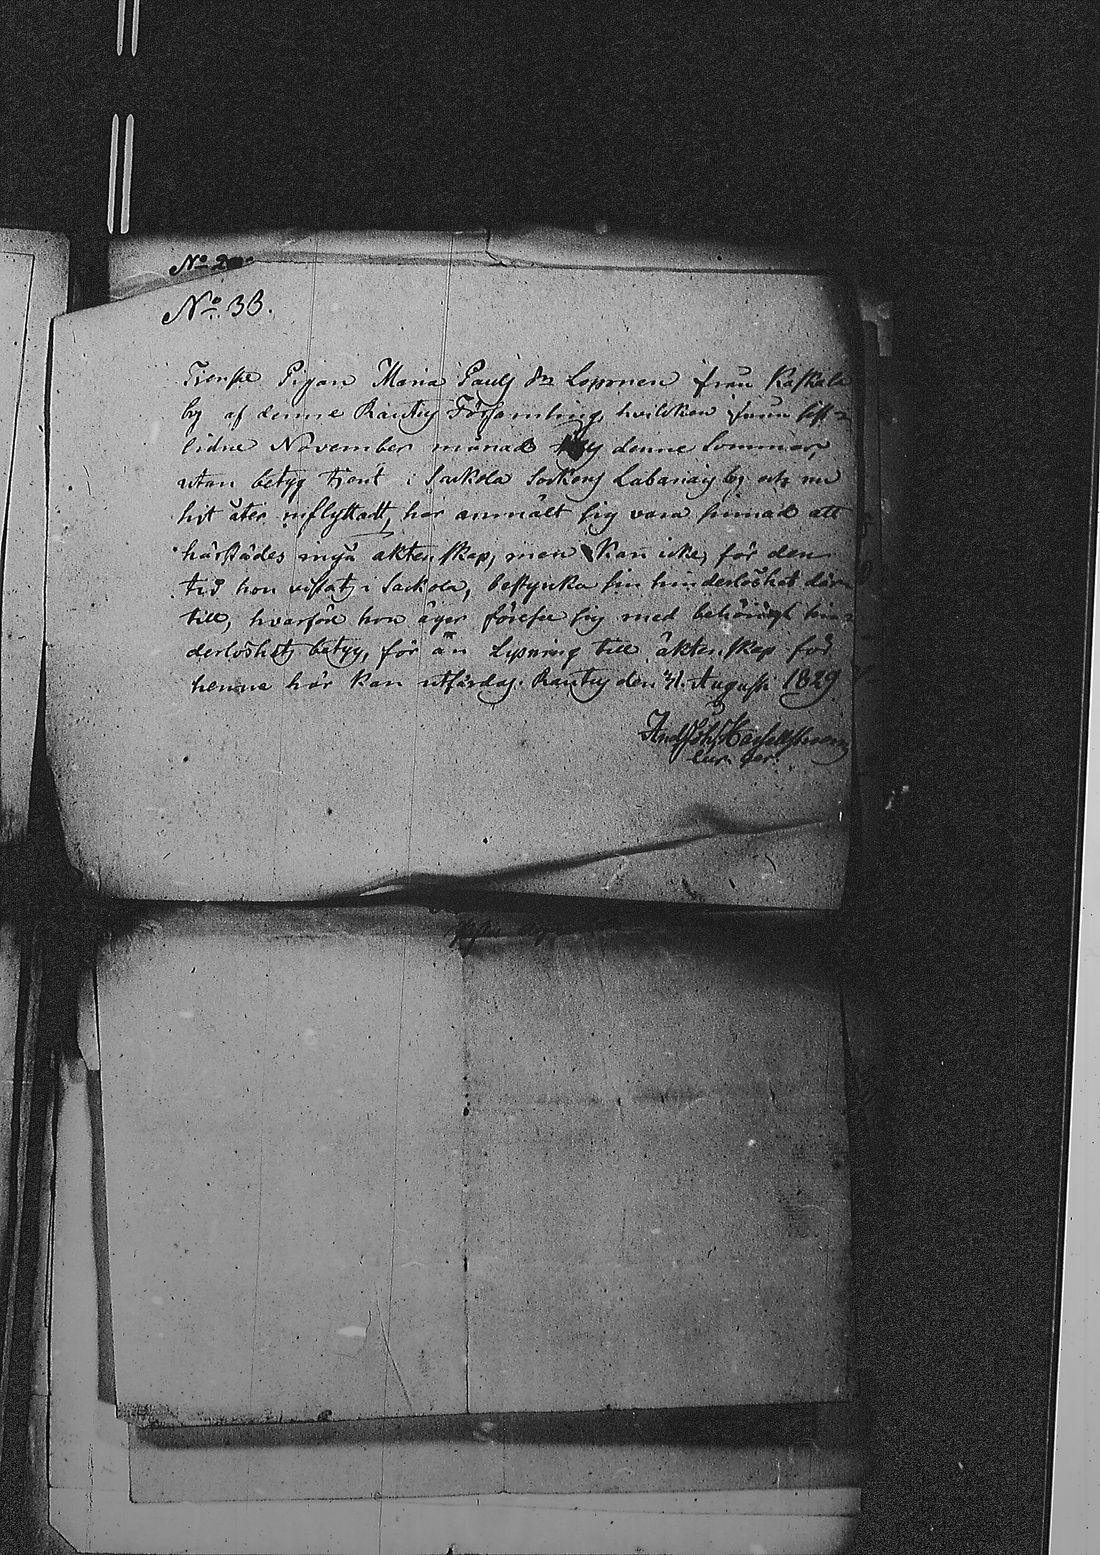 No 33.
Tjenste Pigan Maria Pauls dr Loponen från Kaskala
by af denne Rautus Församling, hvilken från sist-
lidne November månad denne Sommar,
utan betyg tjent i Sackola Sockens Labanais by och nu
hit åter inflyttadt, har anmält sig vara sinnad att
härstädes ingå äktenskap, men kan icke, för den
tid hon vistats i Sackola, bestyrka sin hinderlöshet där-
till, hvarföre hon äger förese sig med behörigt hin-
derlöshets betyg, för än Lysning till äktenskap för
henne här kan utfärdas. Rautus den 31. Augusti 1829